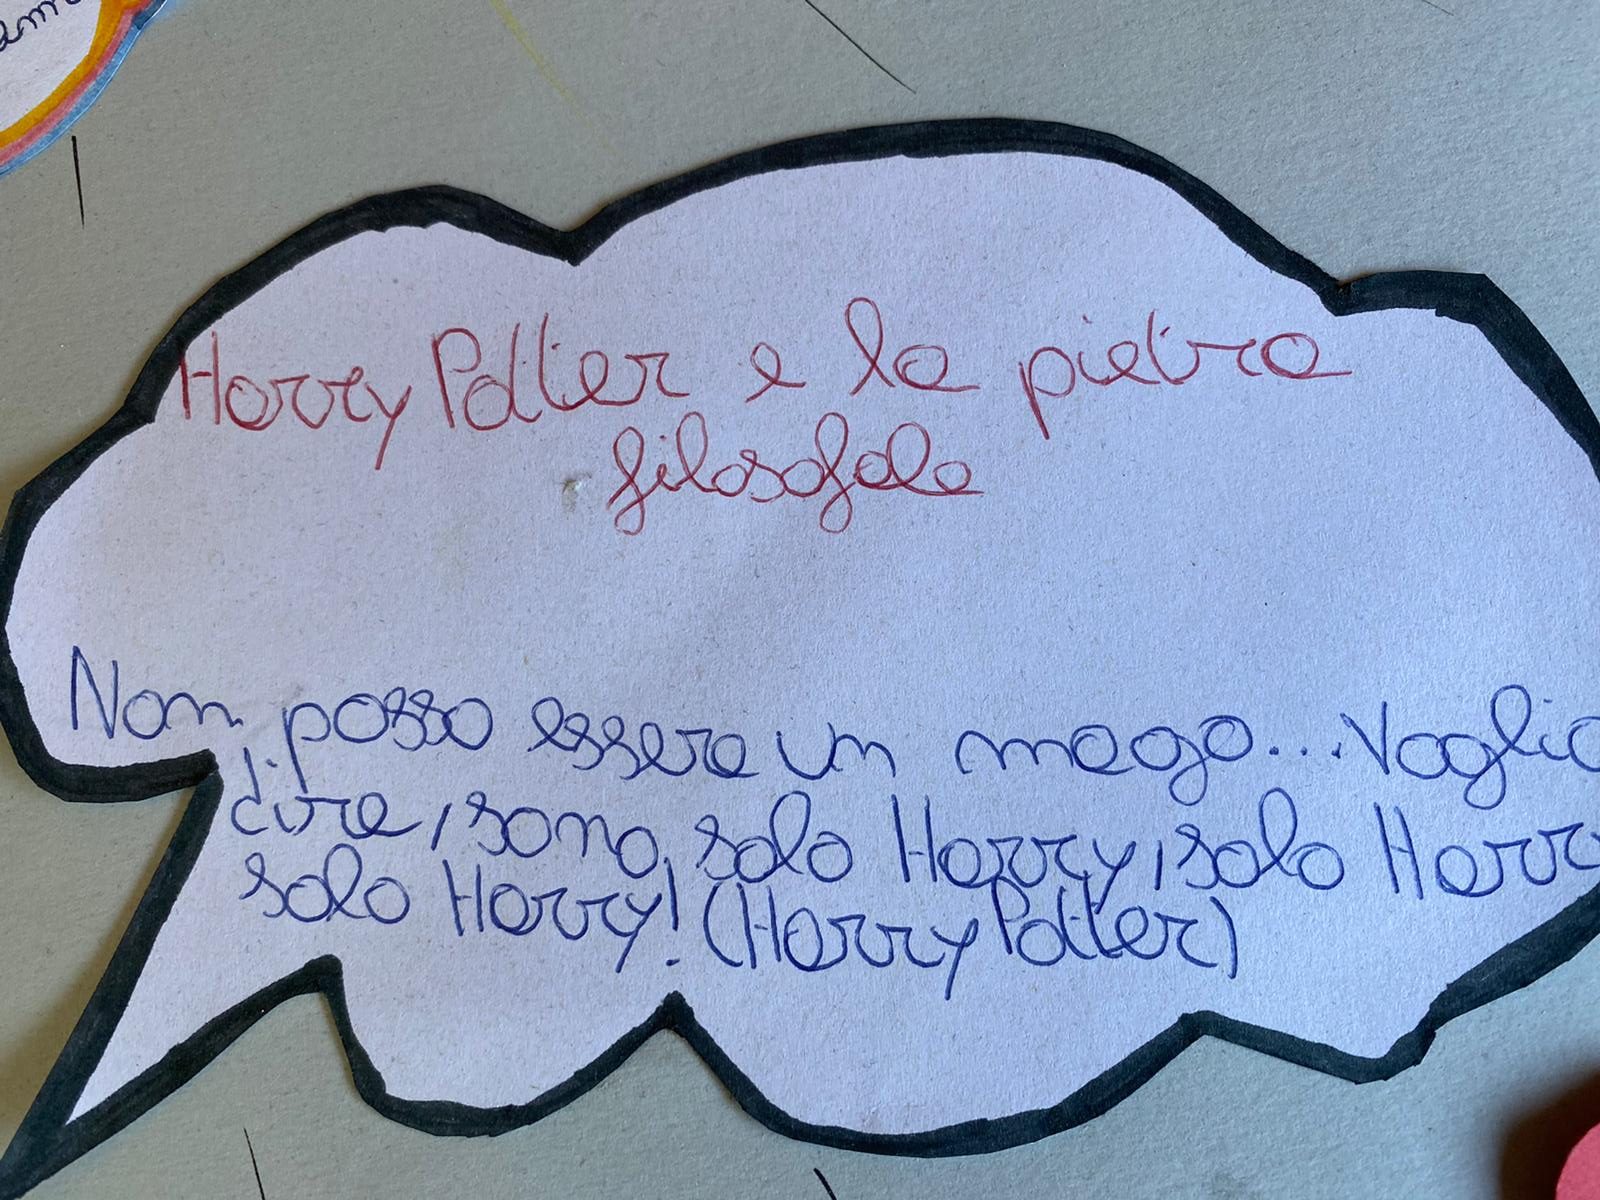 Harry Potter e la pietra
filosofale
Non posso essere un mago... Voglio
dire, sono, solo Harry, solo Harry
solo Harry! (Harry Potter)